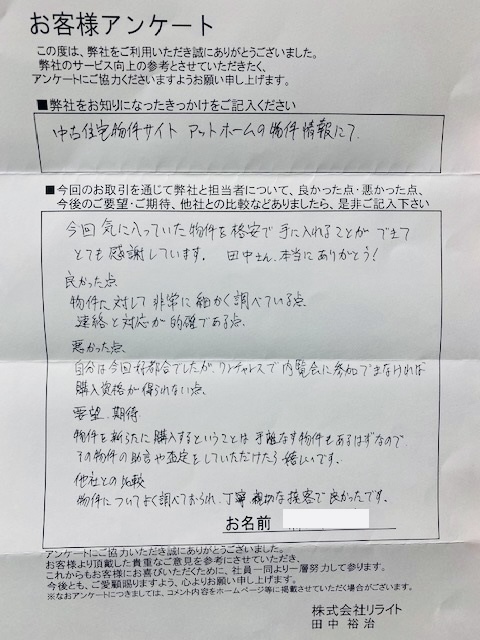 お客様アンケート
この度は、弊社をご利用いただき誠にありがとうございました。
弊社のサービス向上の参考とさせていただきたく、
アンケートにご協力くださいますようお願い申し上げます。
■弊社をお知りになったきっかけをご記入ください
中古住宅物件サイト アットホームの物件情報にて.
■今回のお取引を通じて弊社と担当者について、良かった点・悪かった点、
今後のご要望・ご期待、他社との比較などありましたら、是非ご記入下さい
今回気に入っていた物件を格安で手に入れることができて
とても感謝しています. 田中さん.本当にありがとう!
良かった点
物件に対して非常に細かく調べている点.
連絡と対応が的確である点.
悪かった点.
自分は今回好都合でしたが.ワンチャンスで内覧会に参加できなければ
購入資格が得られない点.
要望.期待
物件を新らたに購入するということは手離なす物件もあるはずなので
その物件の助言や査定をしていただけたら嬉いです.
他社との比較
物件についてよく調べておられ.丁寧 親切な接客で良かったです.
お名前
アンケートにご協力いただき誠にありがとうございました。
お客様より頂戴した貴重なご意見を参考にさせていただき、
これからもお客様にお喜びいただくために、社員一同より一層努力して参ります。
今後とも、ご愛顧賜りますよう、心よりお願い申し上げます。
※なおアンケートにつきましては、コメント内容をホームページ等に掲載させていただく場合がございます。
株式会社リライト
田中 裕治